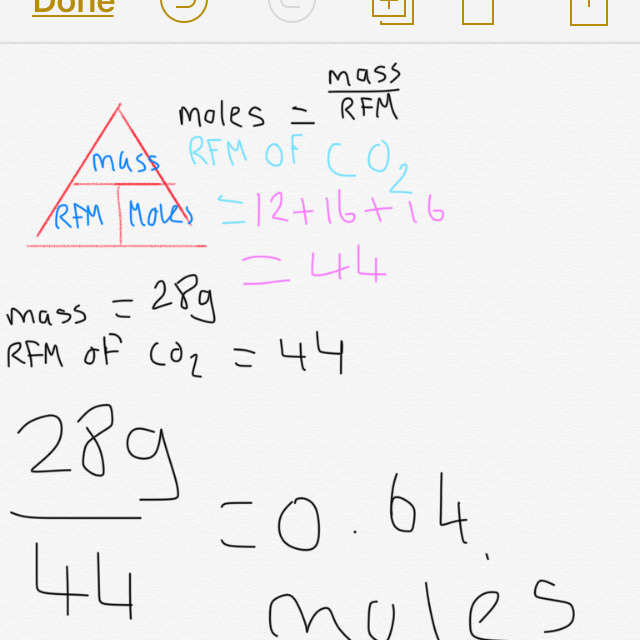 Done
moles = mass
RFM
mass
RFM Moles
RFM OF CO2
= 12+16+16
= 44
mass = 28g
RFM of CO2 = 44
28g
44
= 0.64
moles